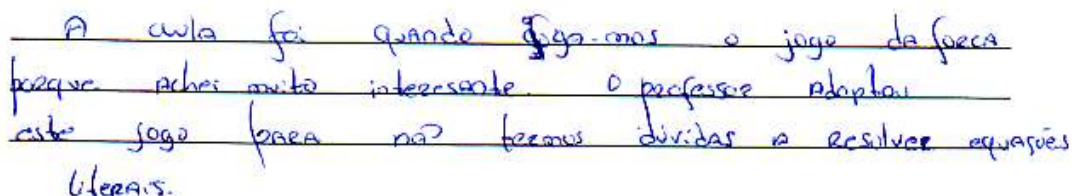 A aula foi quando joga-mos o jogo da forca
porque achei muito interesante. O professor adaptou
este jogo para não termos dúvidas a resolver equações
literais.